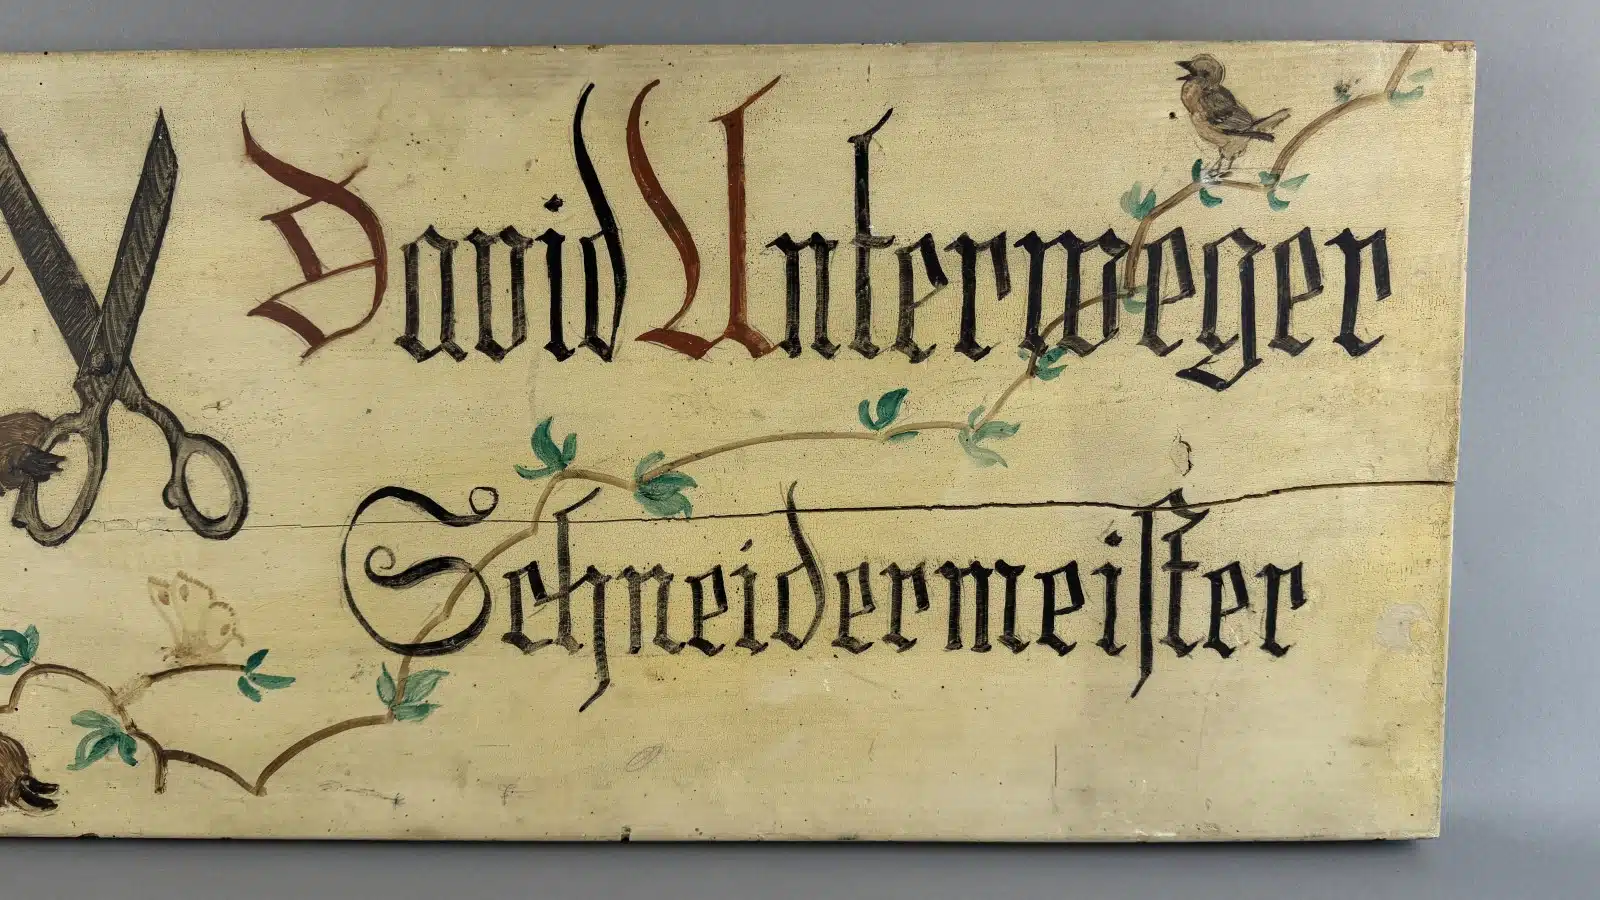 David Unterweger
Schneidermeister